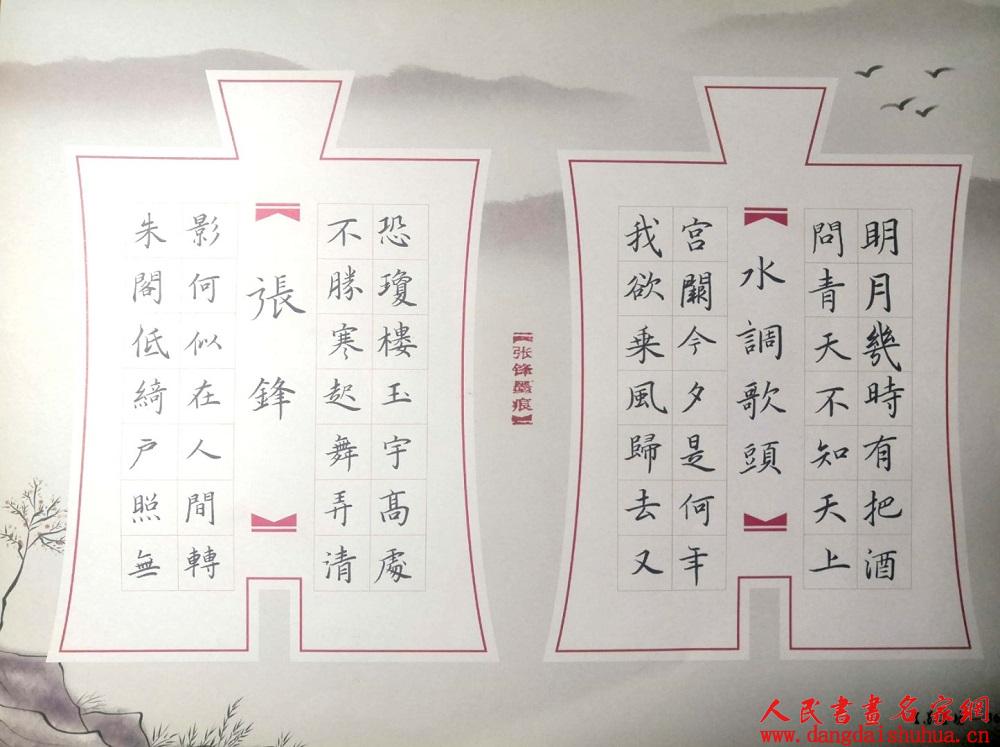 明月幾時有把酒
問青天不知天上
水調歌頭
宮闕今夕是何年
我欲乘風歸去又
张锋墨痕
恐瓊樓玉宇高處
不勝寒起舞弄清
張鋒
影何似在人間轉
朱閣低綺戶照無
人民書畫名家網
www.dangdaishuhua.cn